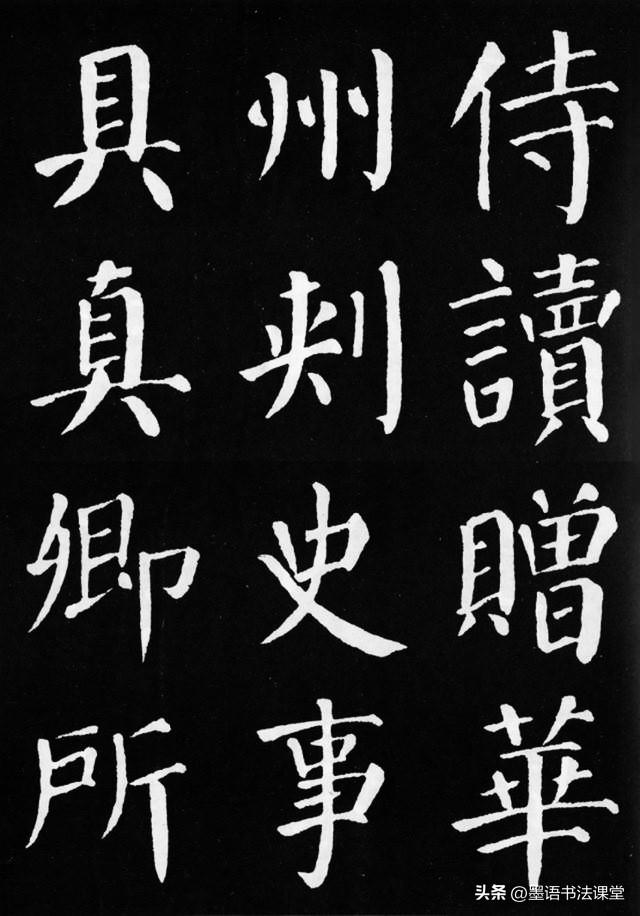 侍讀贈華
州刾史事
具真卿所
头条 @墨语书法课堂